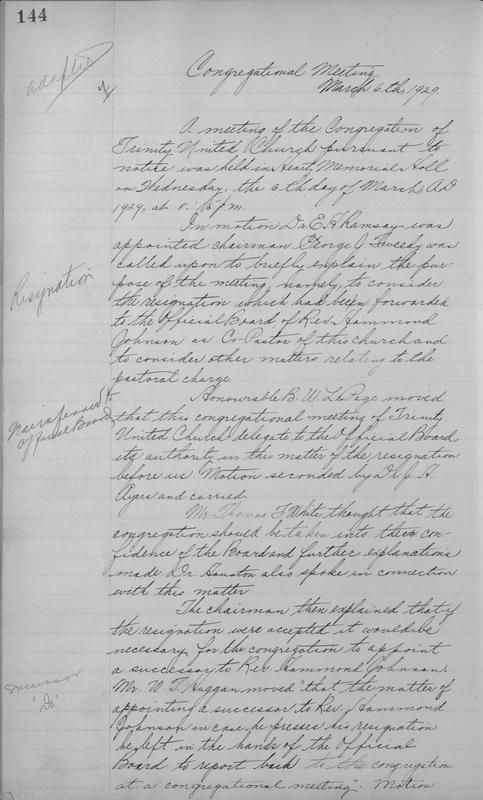 144
adopted
Congregational Meeting
March 6th, 1929
A meeting of the Congregation of
Trinity United Church pursuant to
notice was held in Heartz Memorial Hall
on Wednesday, the 6th day of March AD
1929, at 8:15 p.m.
On motion Dr. E. H. Ramsay was
appointed chairman George J. Tweedy was
called upon to briefly explain the pur-
pose of the meeting, namely, to consider
Resignation
the resignation which had been forwarded
to the Official Board of Rev. Hammond
Johnson as Co-Pastor of this church and
to consider other matters relating to the
pastoral charge.
Honourable B. W. LePage moved
that this congregational meeting of Trinity
United Church delegate to the Official Board
its authority in this matter of the resignation
before us. Motion seconded by Dr. J. H.
Ayers and carried.
Mr. Thomas F. White thought that the
congregation should be taken into the con-
fidence of the Board and further explanations
made. Dr. Houston also spoke in connection
with this matter
The chairman then explained that if
the resignation were accepted it would be
necessary for the congregation to appoint
a successor to Rev. Hammond Johnson.
successor
"Do"
Mr. W. F. Haggan moved "that the matter of
appointing a successor to Rev. Hammond
Johnson in case he presses his resignation
be left in the hands of the Official
Board to report back to the congregation
at a congregational meeting". Motion